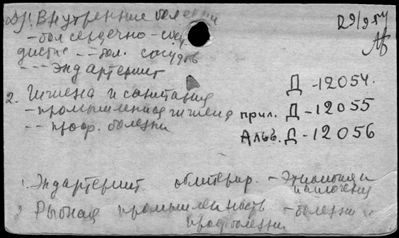 Др. Внутренние болезни
- бол сердечно - сосу
дистые - - бол. сосудов
- - - Эндартериит
2. Гигиена и санитария
- промышленная гигиена
- - проф. болезни
Д - 12054.
прил. Д - 12055
Альб. Д - 12056
1. Эндартериит облитерир. - Этиология
и патогенез
2 Рыбная промышленность - болезни и
проф болезни